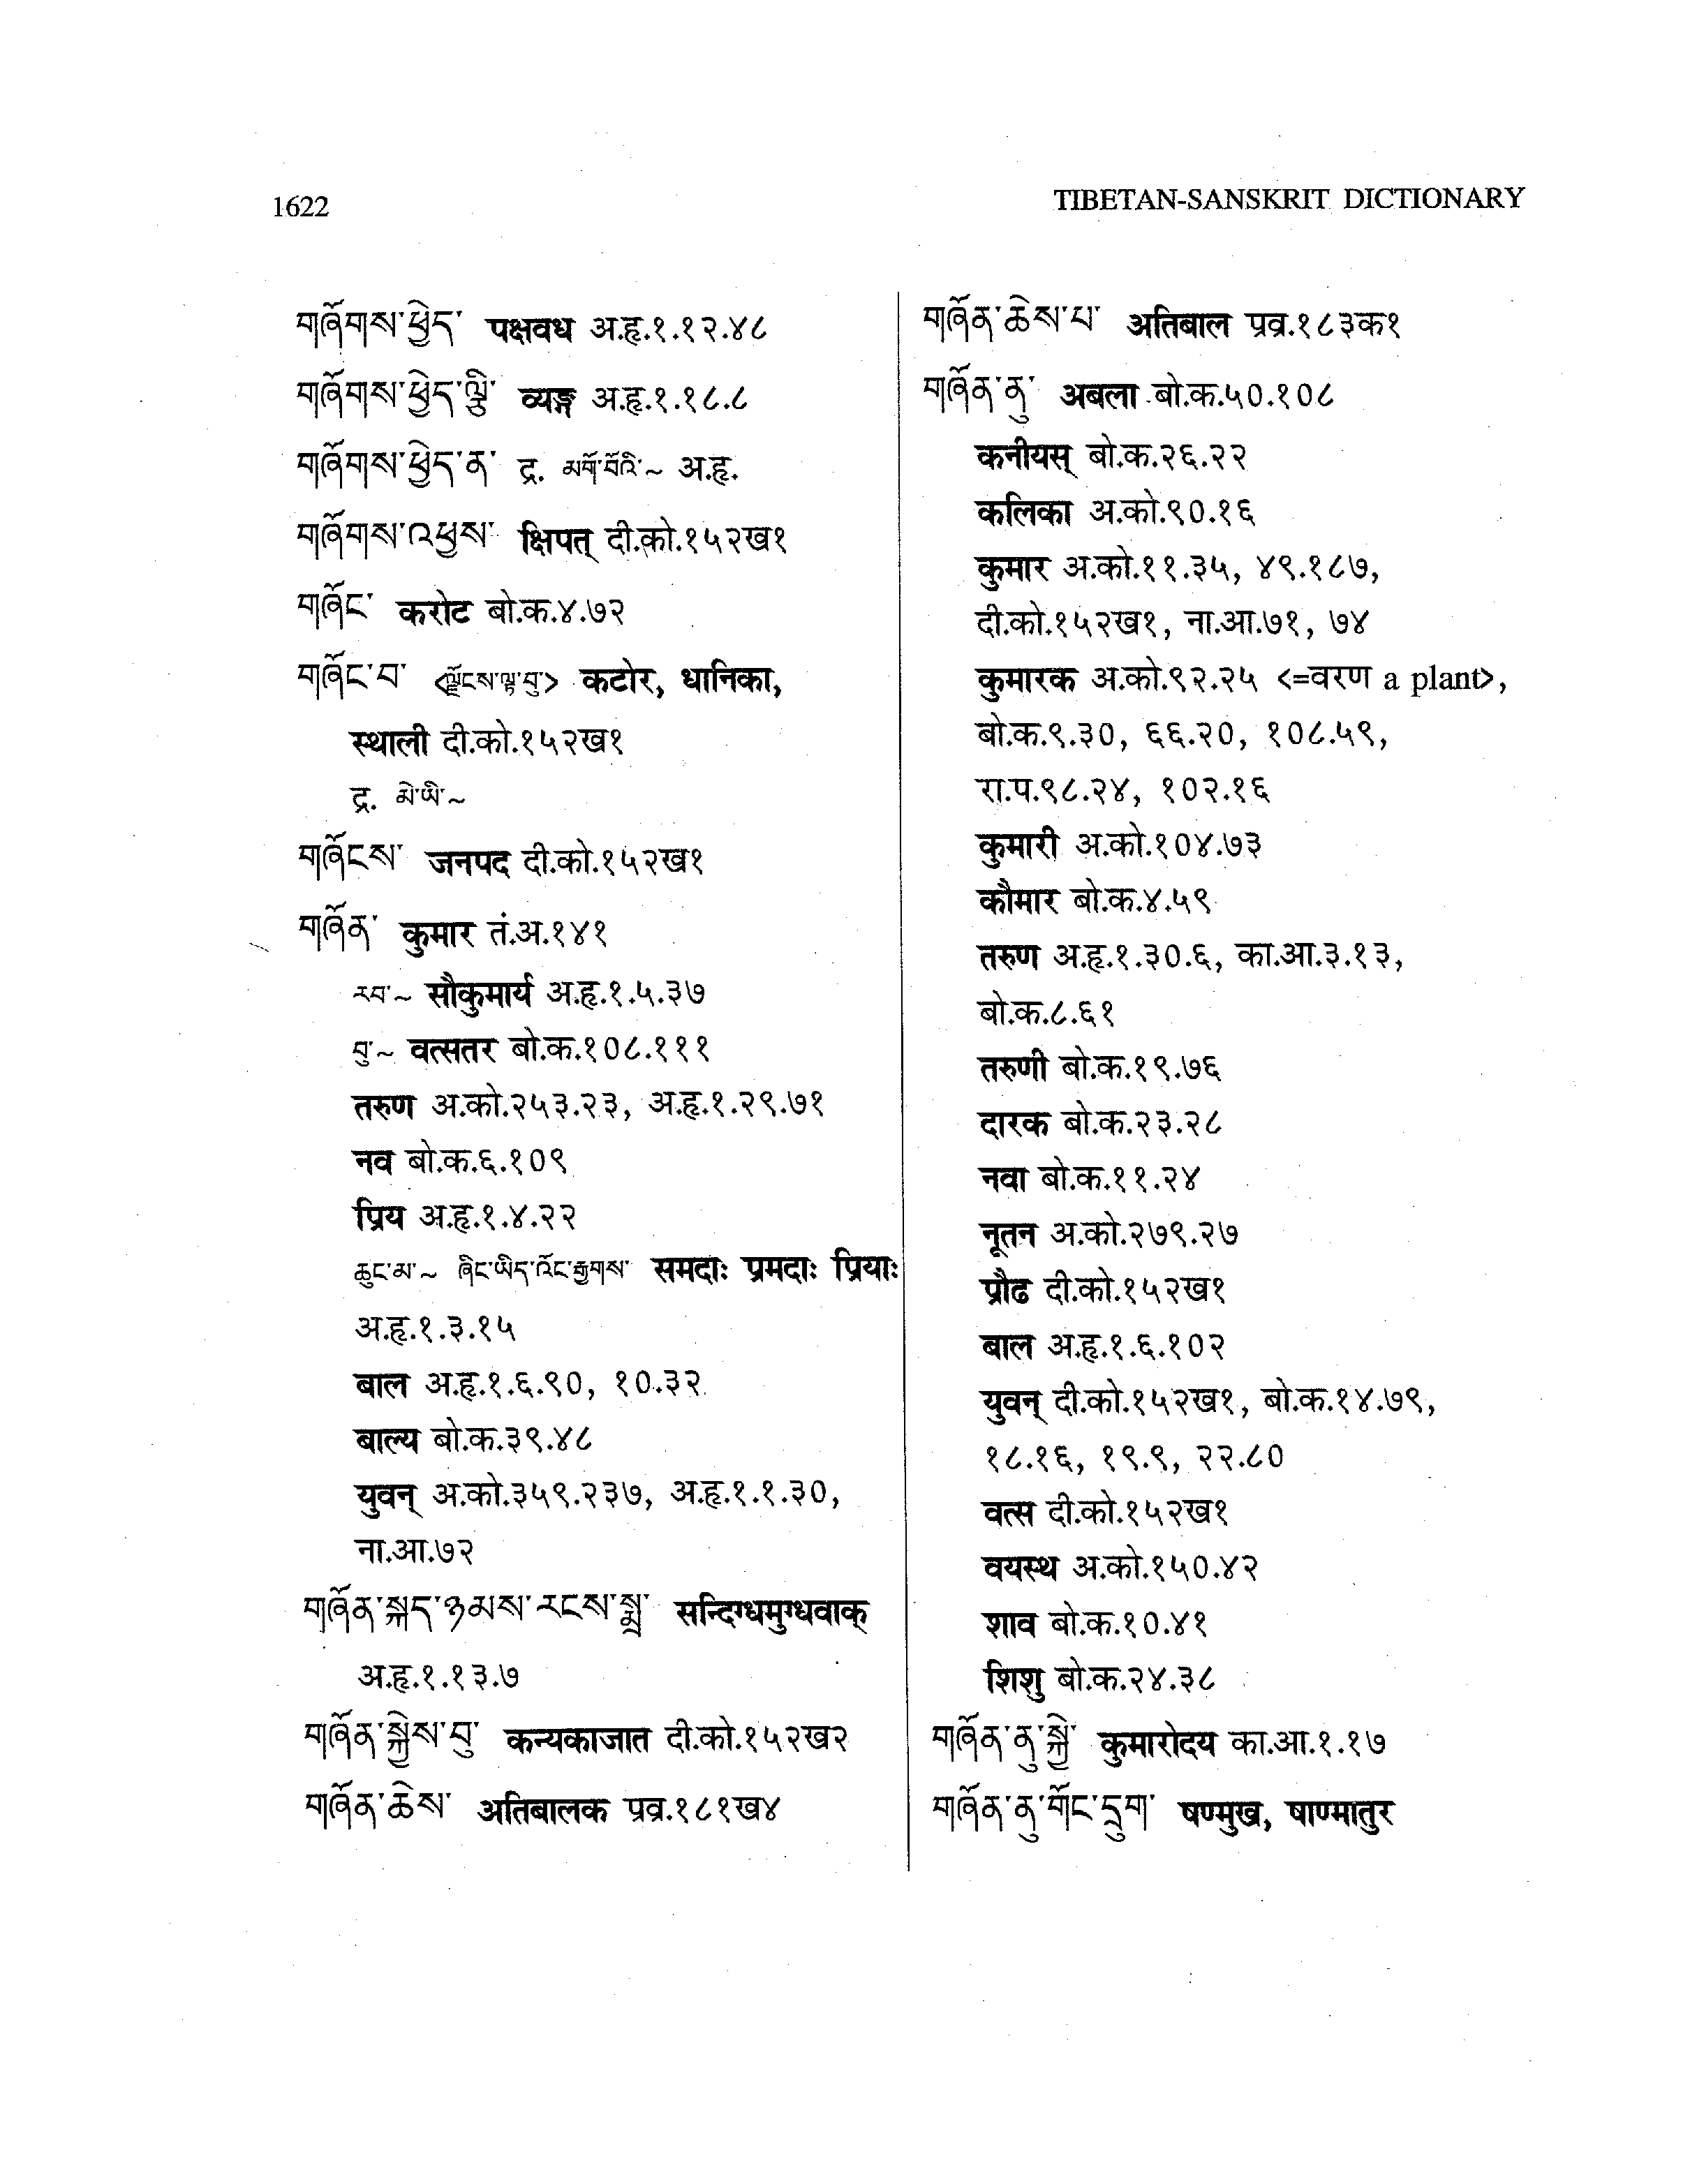 1622
TIBETAN-SANSKRIT DICTIONARY
གཞོགས་ཕྱེད་ पक्षवध अ.हृ.१.१२.४८
གཞོགས་ཕྱེད་ལྕི་ व्यङ्ग अ.हृ.१.१८.८
གཞོགས་ཕྱེད་ན་ द्र. མགོ་བོའི་~ अ.हृ.
གཞོགས་འཕྱས་ क्षिपत् दी.को.१५२ख१
གཞོང་ करोट बो.क.४.७२
གཞོང་བ་ <ལྗོངས་ལྟ་བུ་> कटोर, धानिका,
स्थाली दी.को.१५२ख१
द्र. མེ་ཡི་~
གཞོངས་ जनपद दी.को.१५२ख१
གཞོན་ कुमार तं.अ.१४१
རབ་~ सौकुमार्य अ.हृ.१.५.३७
བུ་~ वत्सतर बो.क.१०८.१११
तरुण अ.को.२५३.२३, अ.हृ.१.२९.७१
नव बो.क.६.१०९
प्रिय अ.हृ.१.४.२२
ཆུང་མ་~ ཞིང་ཡིད་འོང་རྒྱགས་ समदाः प्रमदाः प्रियाः
अ.हृ.१.३.१५
बाल अ.हृ.१.६.९०, १०.३२
बाल्य बो.क.३९.४८
युवन् अ.को.३५९.२३७, अ.हृ.१.१.३०,
ना.आ.७२
གཞོན་སྐད་ཉམས་རངས་སྨྲ་ सन्दिग्धमुग्धवाक्
अ.हृ.१.१३.७
གཞོན་སྐྱེས་བུ་ कन्यकाजात दी.को.१५२ख२
གཞོན་ཆེས་ अतिबालक प्रव्र.१८१ख४
གཞོན་ཆེས་པ་ अतिबाल प्रव्र.१८३क१
གཞོན་ནུ་ अबला बो.क.५०.१०८
कनीयस् बो.क.२६.२२
कलिका अ.को.९०.१६
कुमार अ.को.११.३५, ४९.१८७,
दी.को.१५२ख१, ना.आ.७१, ७४
कुमारक अ.को.९२.२५ <=वरण a plant>,
बो.क.९.३०, ६६.२०, १०८.५९,
रा.प.९८.२४, १०२.१६
कुमारी अ.को.१०४.७३
कौमार बो.क.४.५९
तरुण अ.हृ.१.३०.६, का.आ.३.१३,
बो.क.८.६१
तरुणी बो.क.१९.७६
दारक बो.क.२३.२८
नवा बो.क.११.२४
नूतन अ.को.२७९.२७
प्रौढ दी.को.१५२ख१
बाल अ.हृ.१.६.१०२
युवन् दी.को.१५२ख१, बो.क.१४.७९,
१८.१६, १९.९, २२.८०
वत्स दी.को.१५२ख१
वयस्थ अ.को.१५०.४२
शाव बो.क.१०.४१
शिशु बो.क.२४.३८
གཞོན་ནུ་སྐྱེ་ कुमारोदय का.आ.१.१७
གཞོན་ནུ་གོང་དྲུག་ षण्मुख, षाण्मातुर